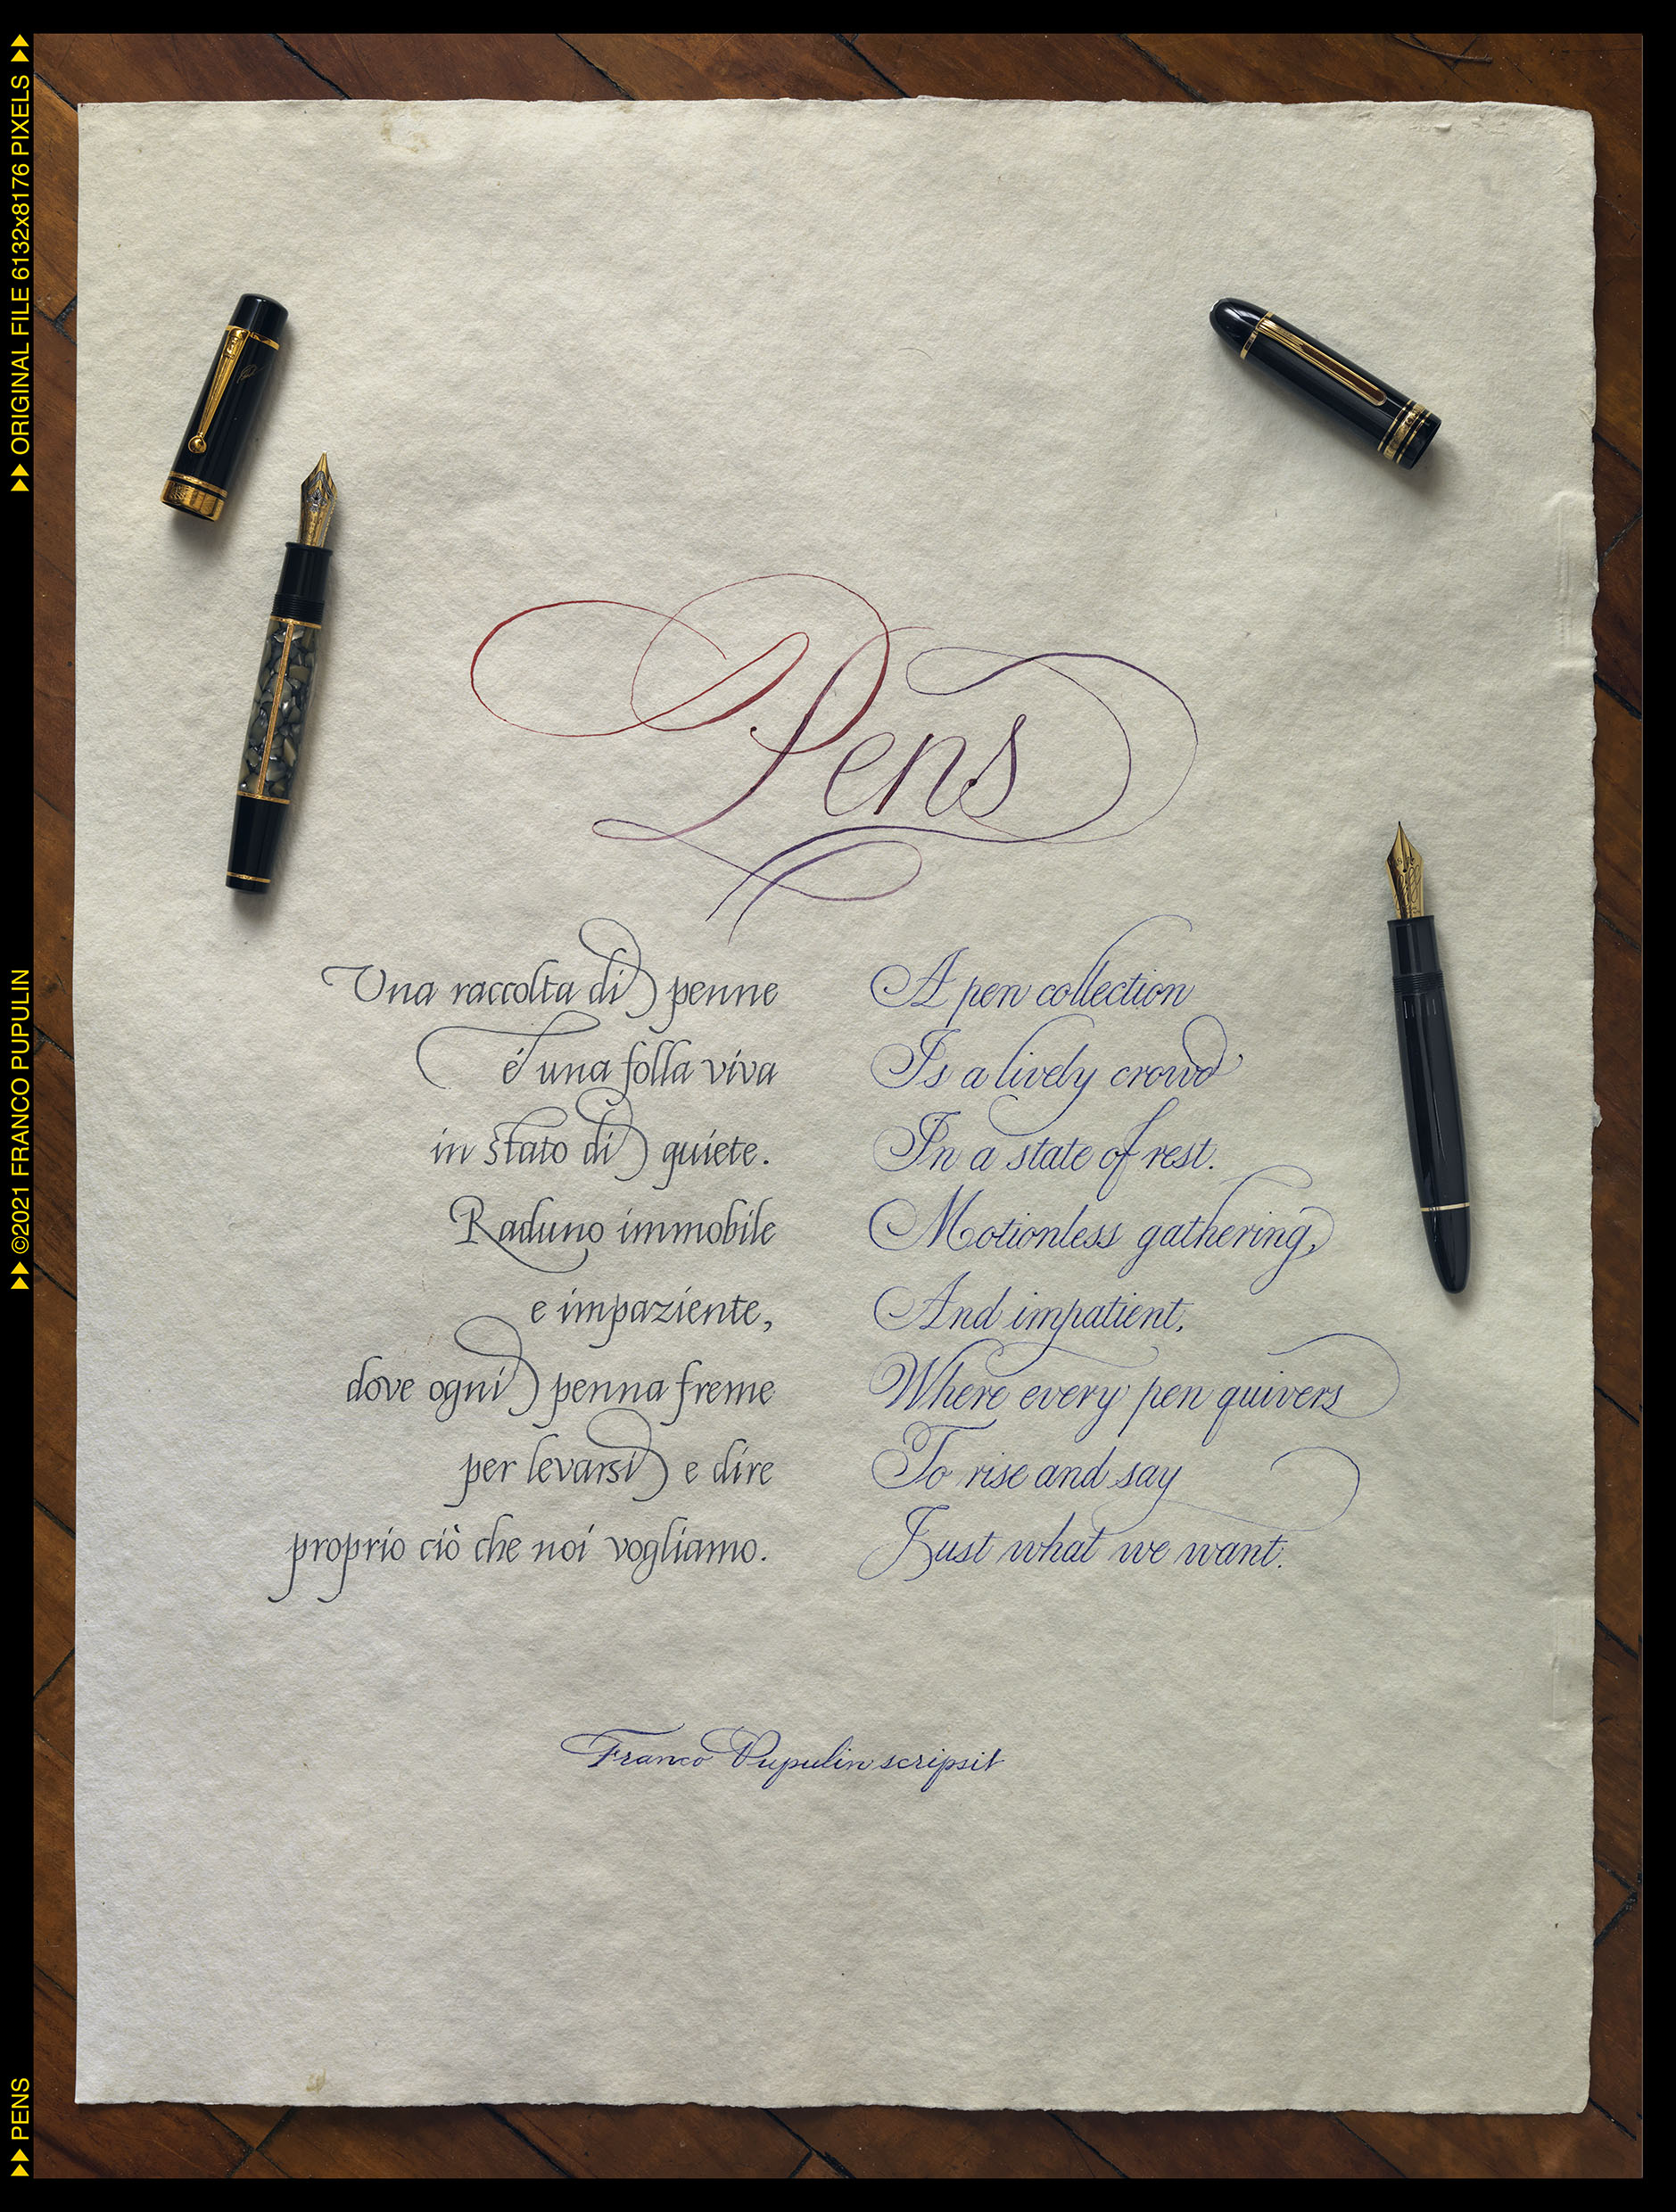 Pens
Una raccolta di penne
é una folla viva
in stato di quiete.
Raduno immobile
e impaziente,
dove ogni penna freme
per levarsi e dire
proprio ciò che noi vogliamo.
A pen collection
Is a lively crowd
In a state of rest.
Motionless gathering,
And impatient,
Where every pen quivers
To rise and say
Just what we want.
Franco Pupulin scripsit
PENS
©2021 FRANCO PUPULIN
ORIGINAL FILE 6132x8176 PIXELS